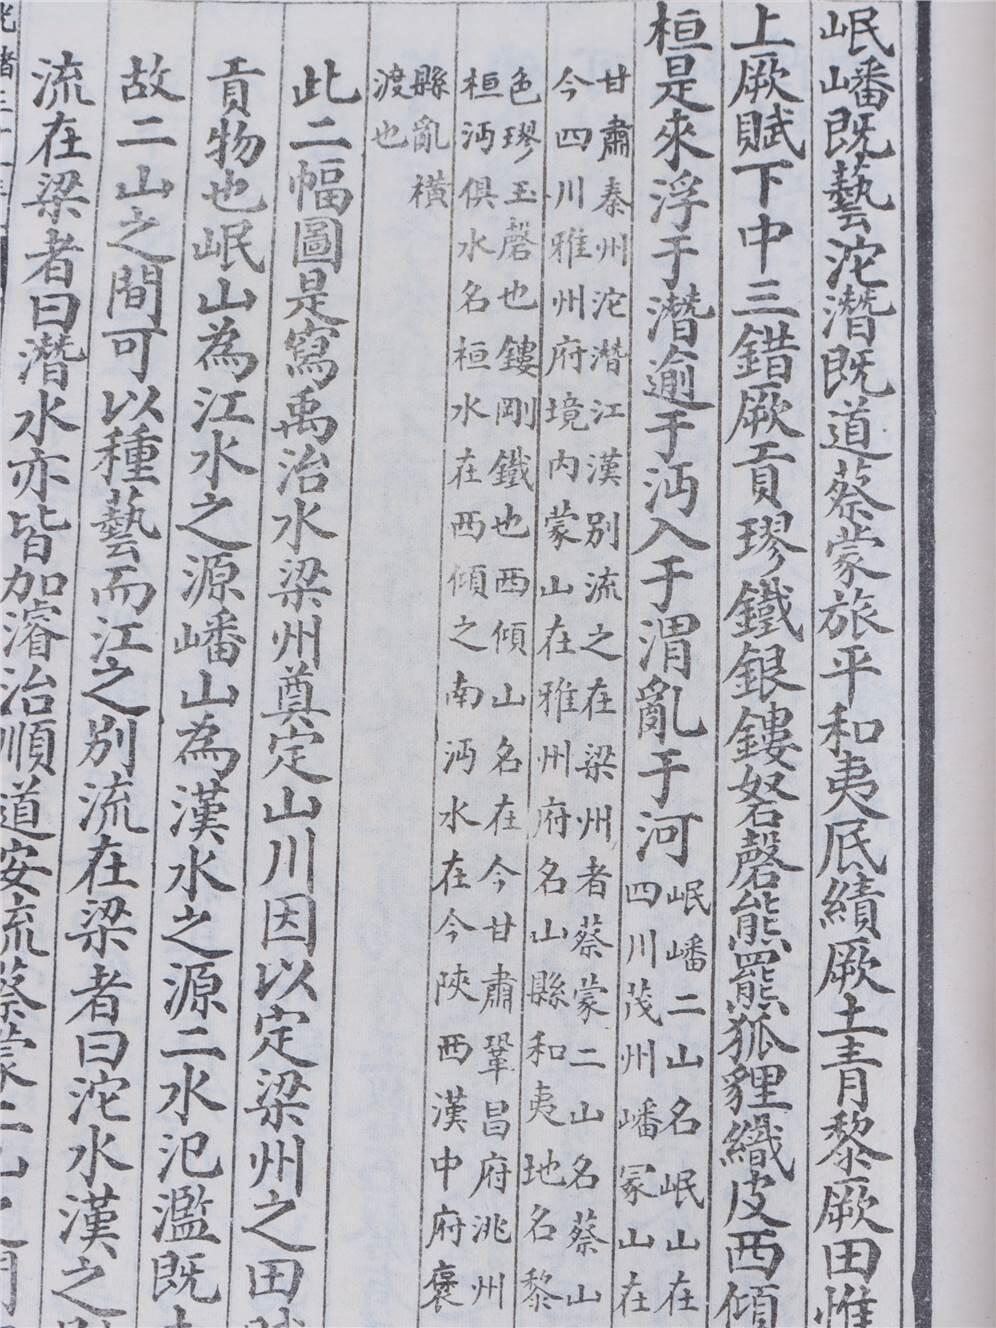 岷嶓既藝沱潛既道蔡蒙旅平和夷厎績厥土青黎厥田惟
上厥賦下中三錯厥貢璆鐵銀鏤砮磬熊羆狐貍織皮西傾
桓是來浮于潛逾于沔入于渭亂于河
岷嶓二山名岷山在
四川茂州嶓冢山在
甘肅秦州沱潛江漢別流之在梁州者蔡蒙二山名蔡山
今四川雅州府境內蒙山在雅州府名山縣和夷地名黎
色璆玉磬也鏤剛鐵也西傾山名在今甘肅鞏昌府洮州
桓沔俱水名桓水在西傾之南沔水在今陝西漢中府褒
縣亂橫
渡也
此二幅圖是寫禹治水梁州奠定山川因以定梁州之田
貢物也岷山為江水之源嶓山為漢水之源二水氾濫既
故二山之間可以種藝而江之別流在梁者曰沱水漢之
流在梁者曰潛水亦皆加濬治順道安流蔡蒙二山之間